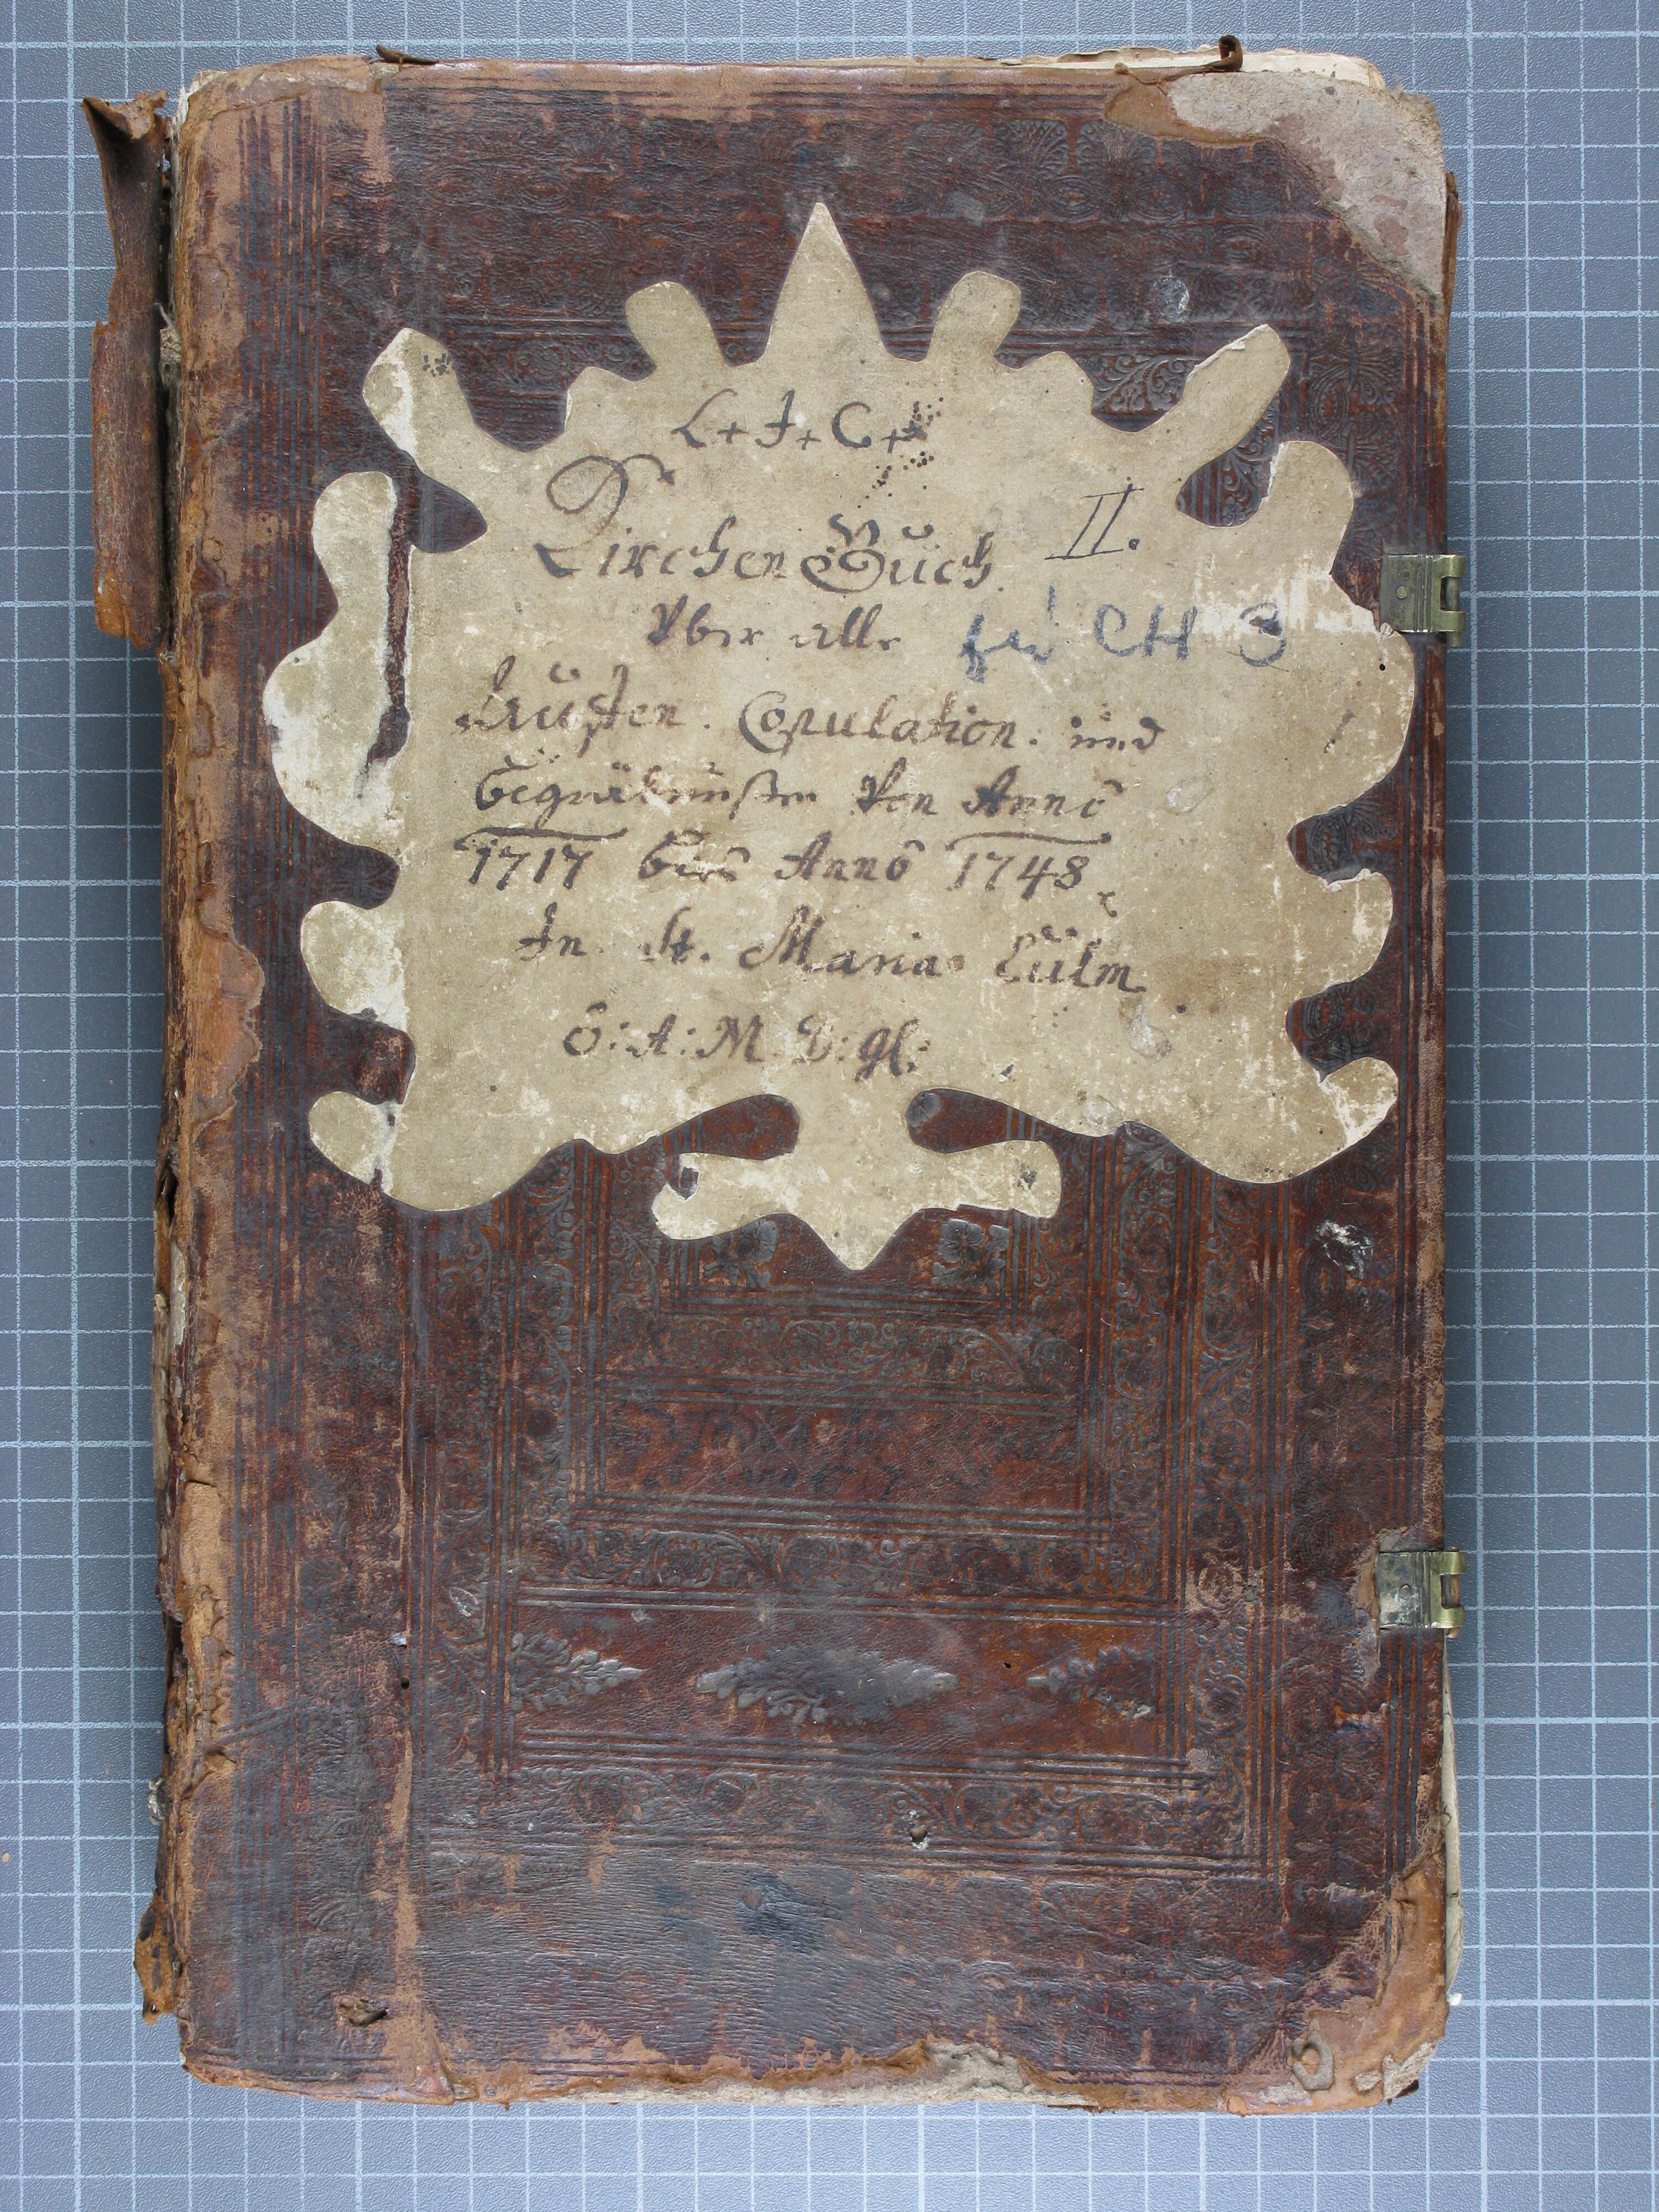 L + J + C +
Kirchen Büch II.
Vber alle CH 3
Tauffen. Copulation. und
Begräbnußen Von Anno
1717 bies Anno 1748
In St. Maria Cülm
O: A: M. D: gl: